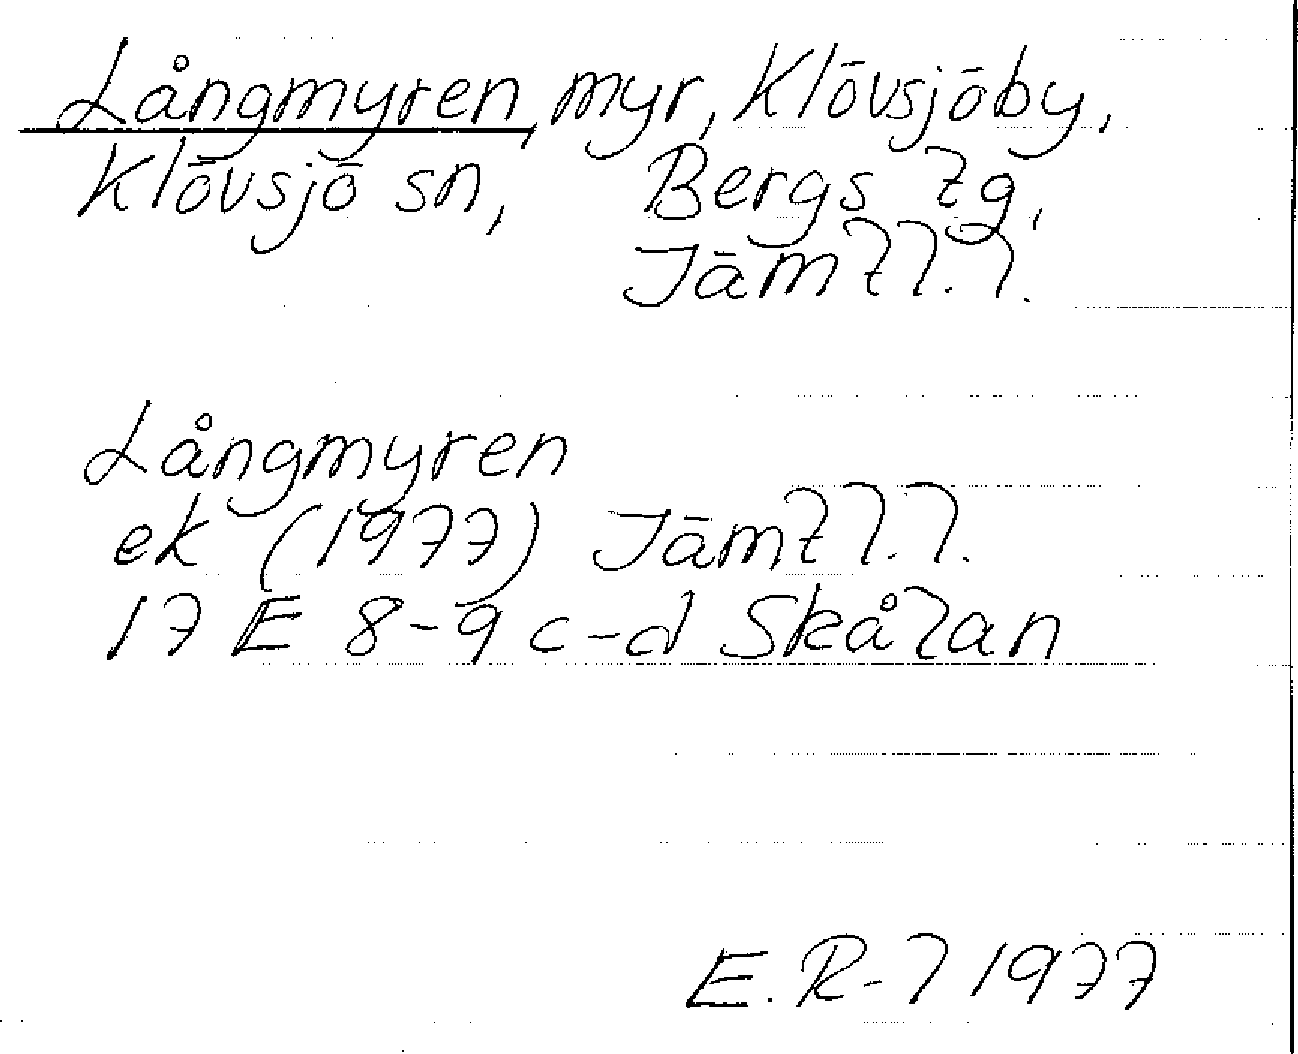 Långmyren, myr, Klövsjöby,
Klövsjö sn, Bergs tg,
Jämtl.l.
Långmyren
ek (1977) Jämtl.l.
17 E 8-9 c-d Skålan
E.R-l 1977